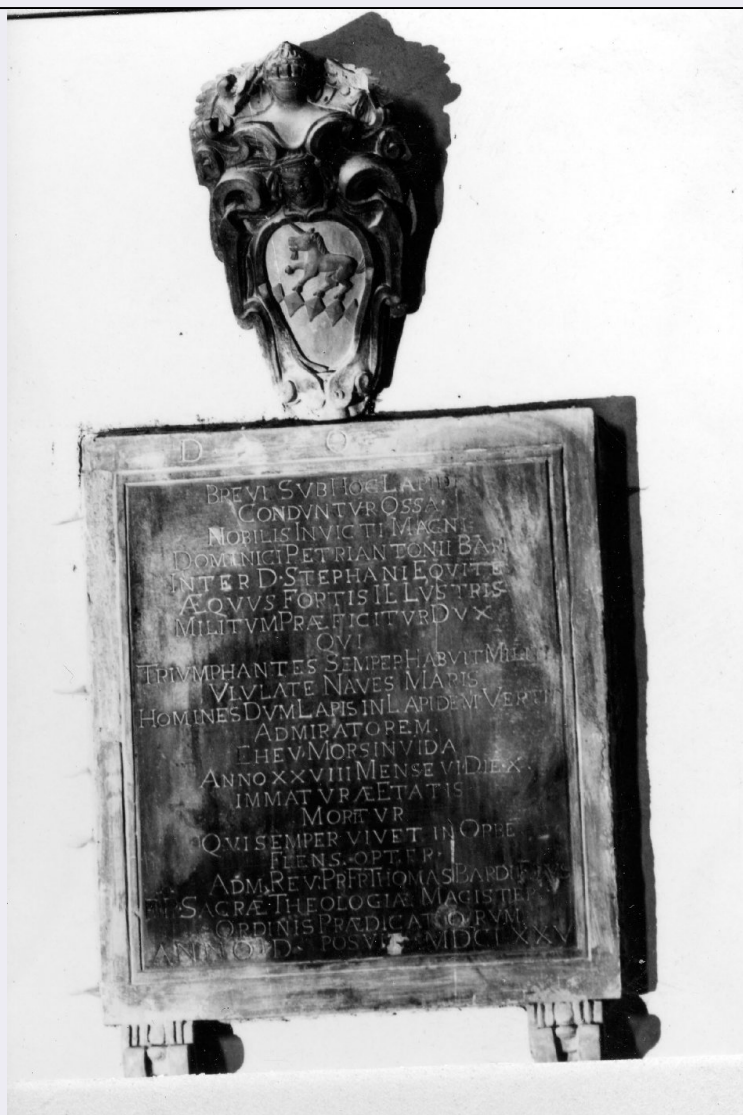 D O
BREVI SVB HOC LAPIDE
CONDVNTVR OSSA
NOBILIS INVICTI MAGNI
DOMINICI PETRIANTONII BARDI
INTER D·STEPHANI EQVITES
ÆQVVS FORTIS ILLVSTRIS
MILITVM PRÆFICITVR DVX
QVI
TRIVMPHANTES SEMPER HABVIT MILITES
VLVLATE NAVES MARIS
HOMINES DVM LAPIS IN LAPIDEM VERTIT
ADMIRATOREM.
EHEV·MORS INVIDA
ANNO XXVIII MENSE VI·DIE·X·
IMMATVRÆ ETATIS
MORITVR
QVI SEMPER VIVET IN ORBE
FLENS·OPT·FR·
ADM·REV·P·R·FR·THOMAS BARDI
SACRÆ THEOLOGIÆ MAGISTER
ORDINIS PRÆDICATORVM
ANNO D· POSVIT MDCLXXV